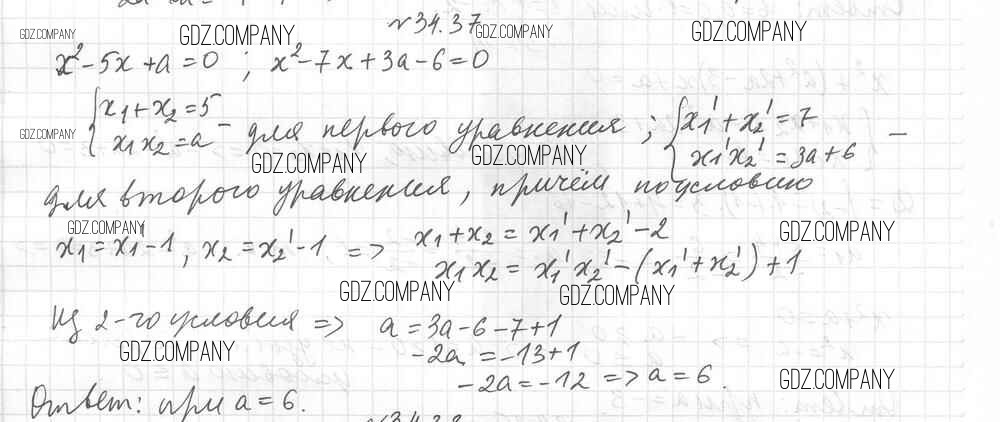 №34.37
GDZ.COMPANY GDZ.COMPANY GDZ.COMPANY GDZ.COMPANY
x² - 5x + a = 0 ; x² - 7x + 3a - 6 = 0
{ x₁ + x₂ = 5
x₁x₂ = a – для первого уравнения ; { x₁' + x₂' = 7
x₁'x₂' = 3a + 6 –
GDZ.COMPANY GDZ.COMPANY GDZ.COMPANY
для второго уравнения, причём по условию
GDZ.COMPANY GDZ.COMPANY
x₁ = x₁' - 1 ; x₂ = x₂' - 1 => x₁ + x₂ = x₁' + x₂' - 2
x₁x₂ = x₁'x₂' - (x₁' + x₂') + 1
GDZ.COMPANY GDZ.COMPANY
Из 2-го условия => a = 3a - 6 - 7 + 1
GDZ.COMPANY
-2a = -13 + 1
-2a = -12 => a = 6.
GDZ.COMPANY
Ответ: при a = 6.